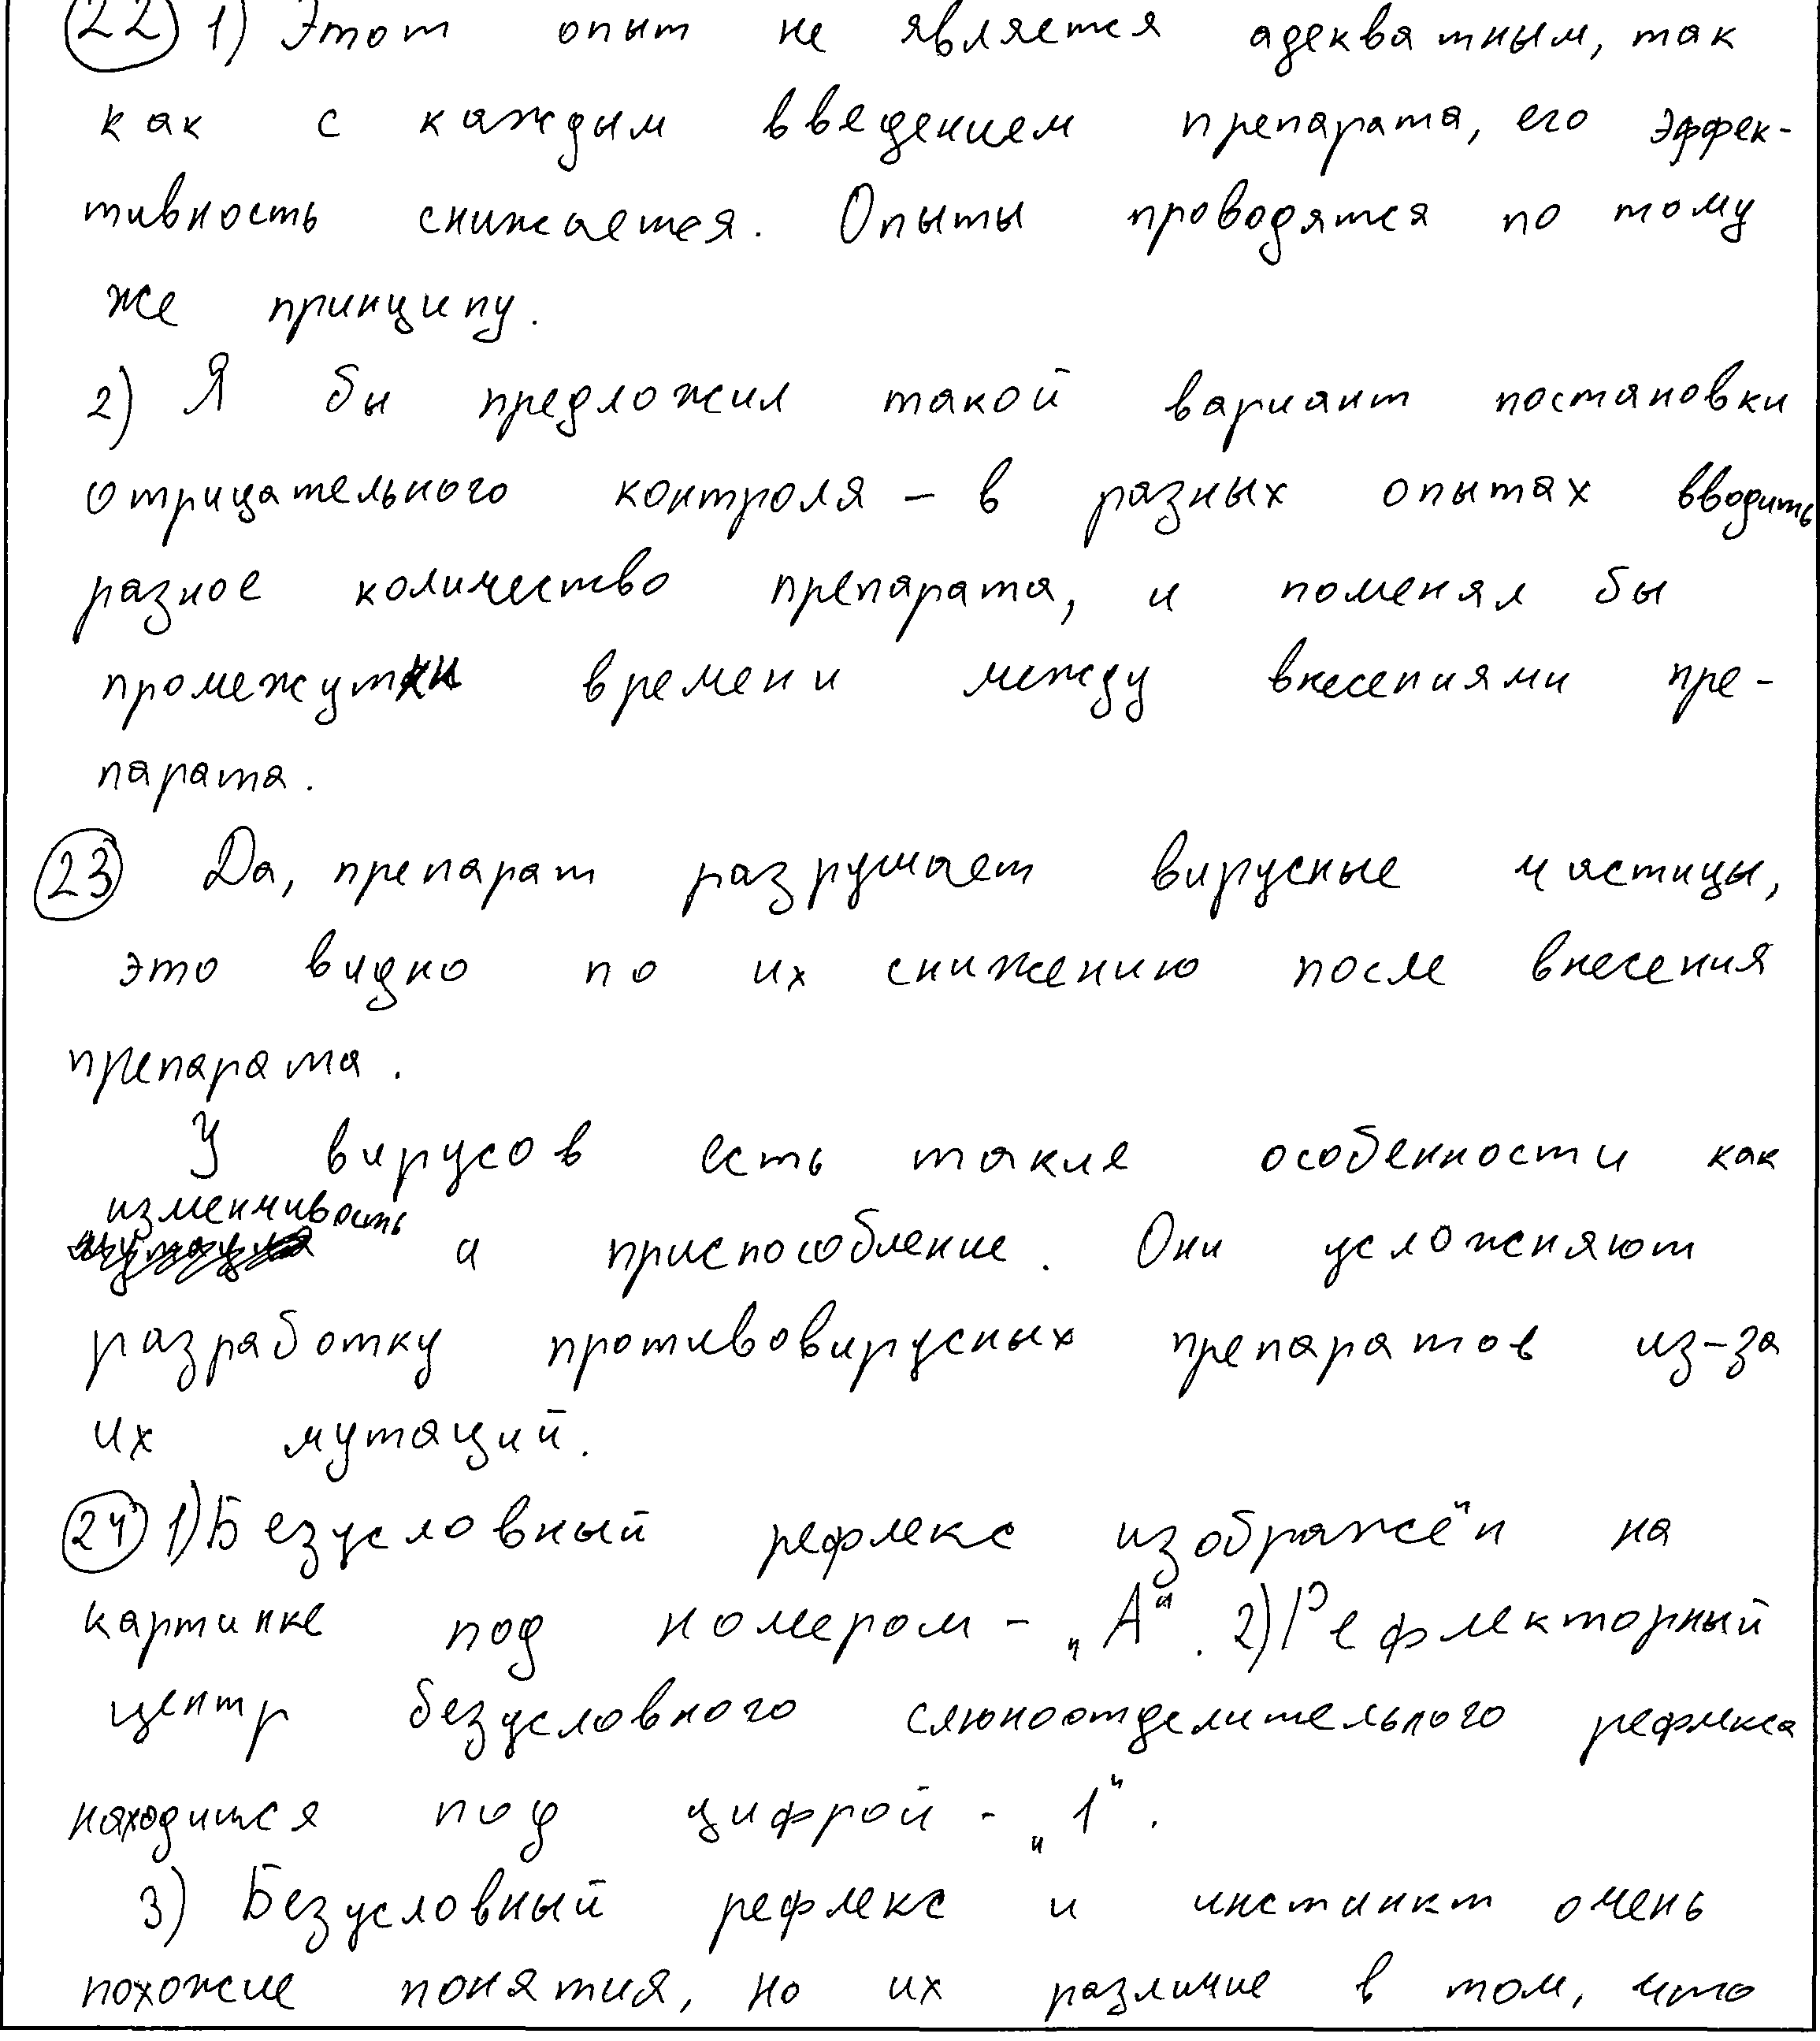 22 1) Этот опыт не является адекватным, так
как с каждым введением препарата, его эффек-
тивность снижается. Опыты проводятся по тому
же принципу.
2) Я бы предложил такой вариант постановки
отрицательного контроля – в разных опытах вводить
разное количество препарата, и поменял бы
промежутки времени между внесениями пре-
парата.
23 Да, препарат разрушает вирусные частицы,
это видно по их снижению после внесения
препарата.
У вирусов есть такие особенности как
изменчивость и приспособление. Они усложняют
разработку противовирусных препаратов из-за
их мутаций.
24 1) Безусловный рефлекс изображён на
картинке под номером – „А“. 2) Рефлекторный
центр безусловного слюноотделительного рефлекса
находится под цифрой - „1“.
3) Безусловный рефлекс и инстинкт очень
похожие понятия, но их различие в том, что